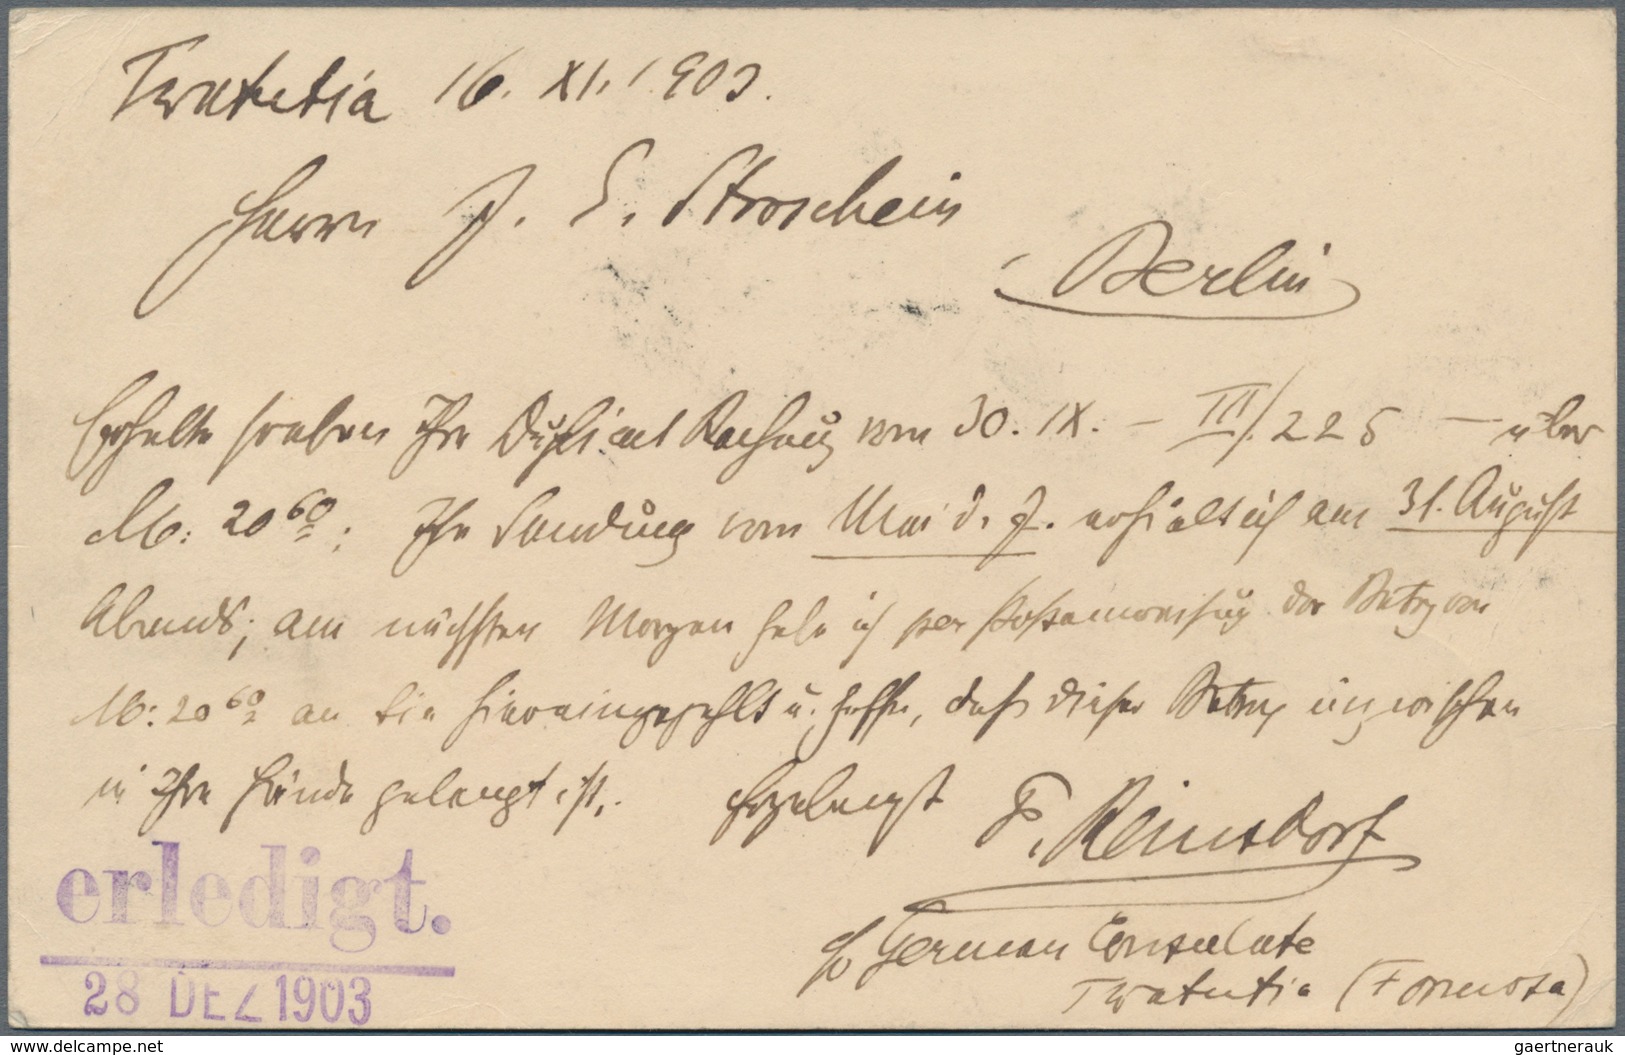 Twatutia 16. XI. 1903.
Herrn J. E. Stroschein
Berlin
Erhalte soeben Ihre Duplicat Rechnung vom 30. IX. – III/. 225 – über
M: 20 60; Ihre Sendung vom Mai d. J. erhielt ich am 31. August
Abends; am nächsten Morgen habe ich per Postanweisung den Betrag von
M: 20 60 an Sie hier eingezahlt u. hoffe, daß dieser Betrag inzwischen
in Ihre Hände gelangt ist.
F. Reinsdorf
erledigt.
c/o German Consulate
28 DEZ 1903
Twatutia (Formosa)
www.delcampe.net
gaertnerauk